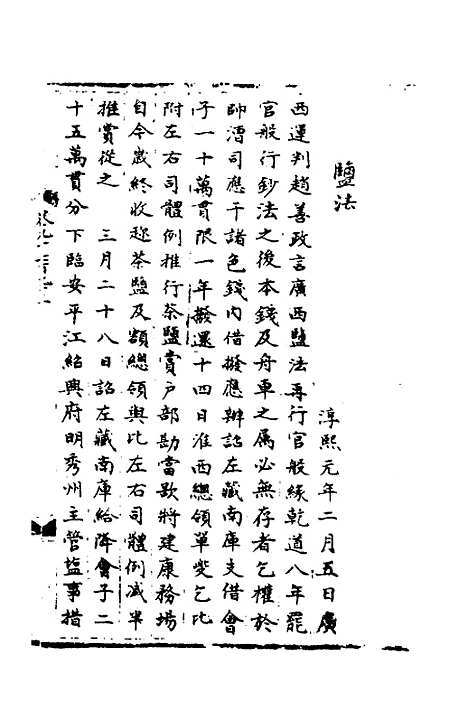 鹽法
淳熙元年二月五日廣
西運判趙善政言廣西鹽法再行官般緣乾道八年罷
官般行鈔法之後本錢及舟車之屬必無存者乞權於
帥漕司應干諸色錢內借撥應辦詔左藏南庫支借會
子一十萬貫限一年撥還十四日淮西總領單夔乞比
附左右司體例推行茶鹽賞户部勘當欲將建康務場
自今歲終收趂茶鹽及額總領與比左右司體例減半
推賞從之　三月二十八日詔左藏南庫給降會子二
十五萬貫分下臨安平江紹興府明秀州主管塩事措